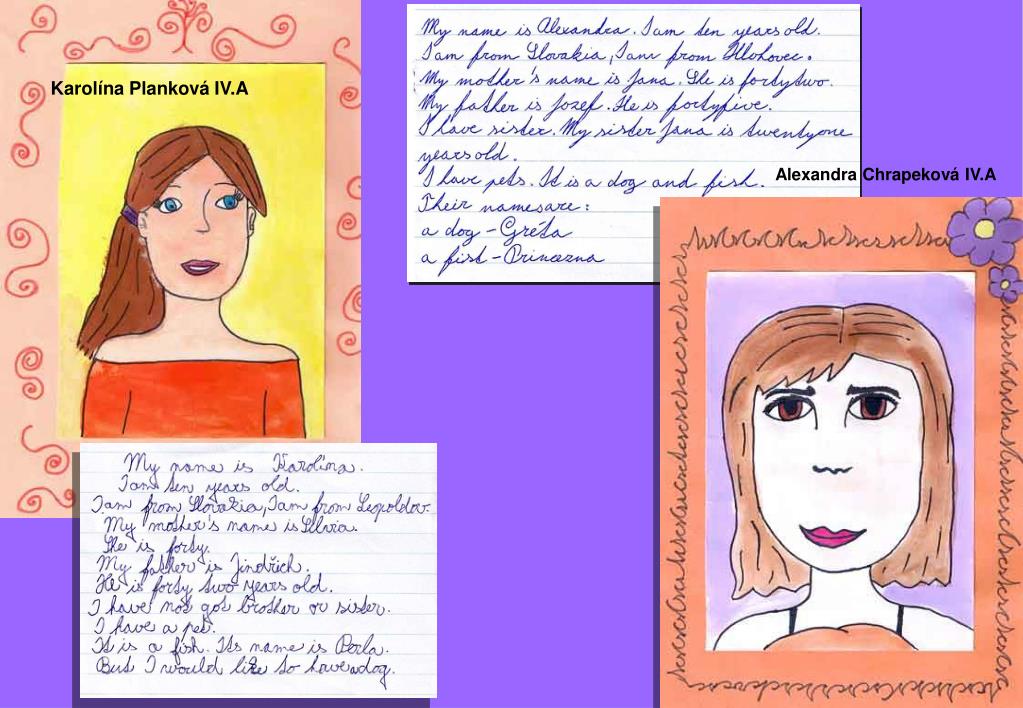 Karolína Planková IV.A
My name is Alexandra. I am ten years old.
I am from Slovakia, I am from Hlohovec.
My mother's name is Jana. She is fortytwo.
My father is Jozef. He is fortyfive.
I have sister. My sister Jana is twentyone
years old.
I have pets. It is a dog and fish.
Their names are:
a dog - Greta
a fish - Princezna
Alexandra Chrapeková IV.A
My name is Karolína.
I am ten years old.
I am from Slovakia, I am from Leopoldov.
My mother's name is Silvia.
She is forty.
My father is Jindřich.
He is forty two years old.
I have not got brother or sister.
I have a pet.
It is a fish. Its name is Perla.
But I would like to have a dog.